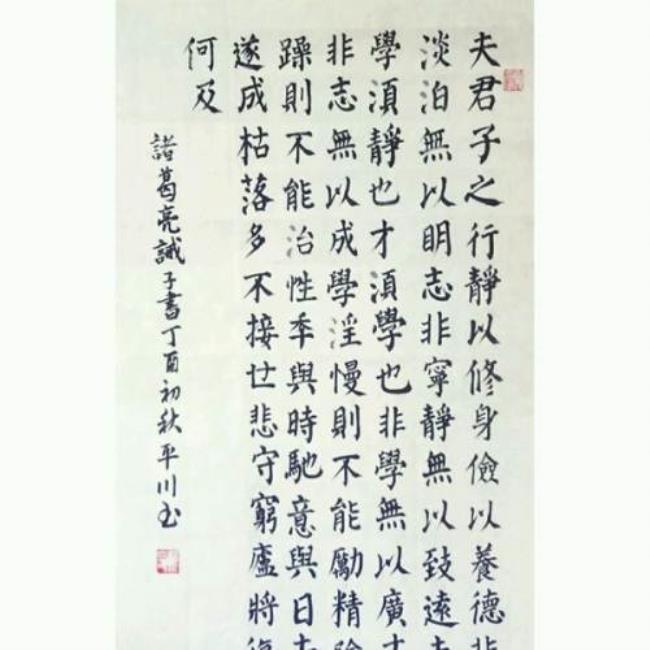 夫君子之行靜以修身儉以養德非
淡泊無以明志非寧靜無以致遠
學湏靜也才湏學也非學無以廣
非志無以成學淫慢則不能勵精
躁則不能治性年與時馳意與日
遂成枯落多不接世悲守窮廬將復
何及
諸葛亮誡子書丁酉初秋平川书